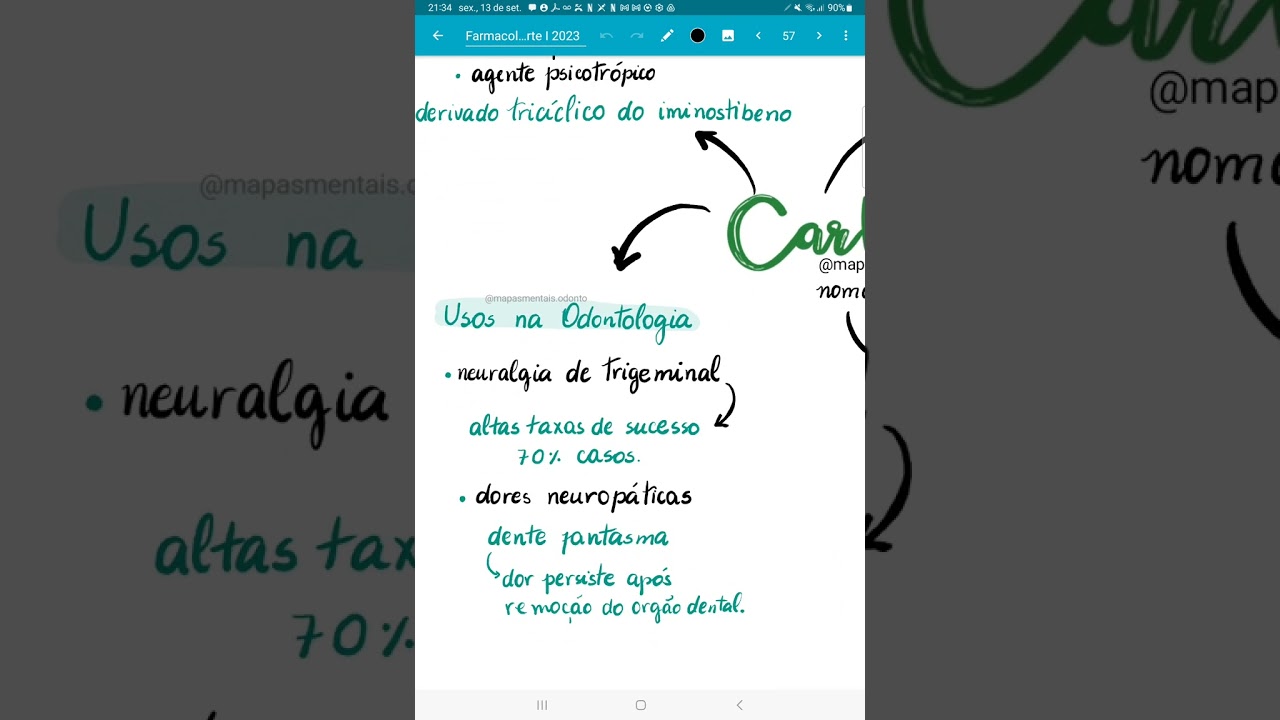 21:34 sex., 13 de set. 90%
Farmacol...rte I 2023 57
• agente psicotrópico
derivado tricíclico do iminostibeno
Carb
@map
nome
@mapasmentais.odonto
Usos na Odontologia
• neuralgia de trigeminal
altas taxas de sucesso
70% casos.
• dores neuropáticas
dente fantasma
dor persiste após
remoção do orgão dental.
@mapasmentais.o
Usos na
• neuralgia
altas tax
70%
@map
nome